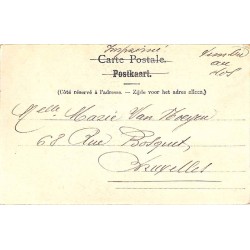 Imprimé
Carte Postale.
Postkaart.
(Côté réservé à l'adresse. – Zijde voor het adres alleen.)
au
dos
Melle Marie Van
68 Rue Bosquet
Bruxelles